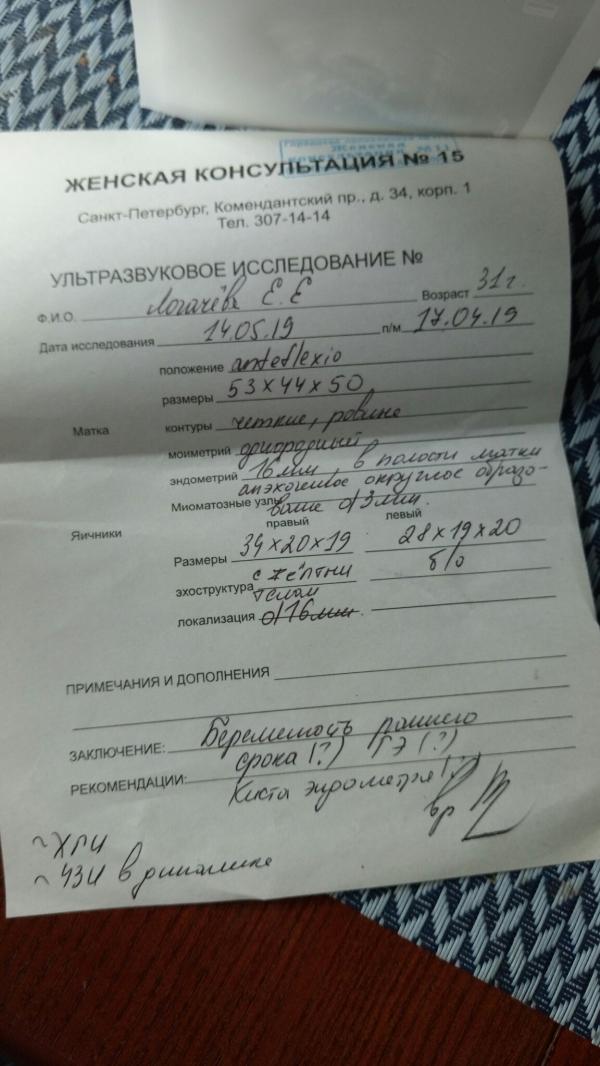 Женская
ЖЕНСКАЯ КОНСУЛЬТАЦИЯ № 15
Санкт-Петербург, Комендантский пр., д. 34, корп. 1
Тел. 307-14-14
УЛЬТРАЗВУКОВОЕ ИССЛЕДОВАНИЕ №
Ф.И.О. Логачёва Е. Е Возраст 31 г.
Дата исследования 14.05.19 п/м 17.04.19
положение anteflexio
размеры 53 х 44 х 50
Матка контуры четкие, ровные
моиметрий однородный
эндометрий 16 мм, в полости матки
анэхогенное округлое образо-
Миоматозные узлы вание d 3 мм.
правый левый
Яичники
Размеры 34 х 20 х 19 28 х 19 х 20
эхоструктура с жёлтым б/о
телом
локализация d 16 мм.
ПРИМЕЧАНИЯ И ДОПОЛНЕНИЯ
ЗАКЛЮЧЕНИЕ: Беременность раннего
срока (?) ГЭ (?)
РЕКОМЕНДАЦИИ: Киста эндометрия (?)
вр
~ ХГЧ
~ УЗИ в динамике